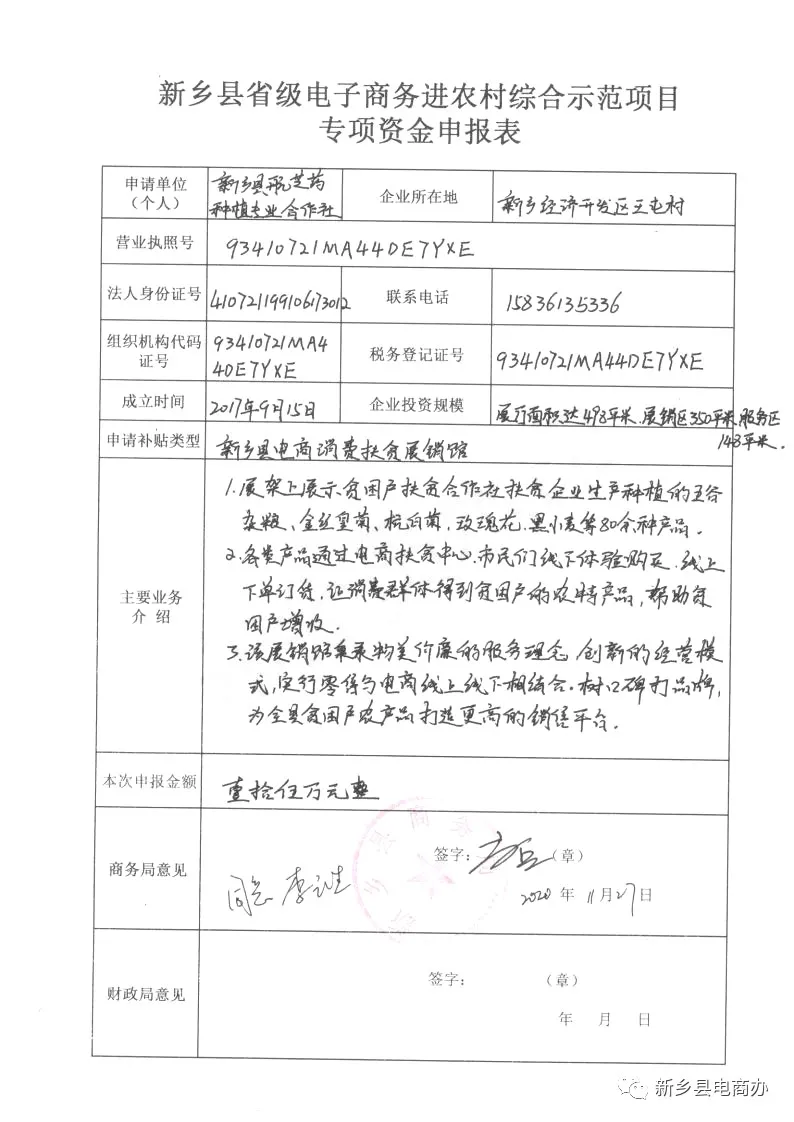 新乡县省级电子商务进农村综合示范项目
专项资金申报表
申请单位
（个人）
新乡县 芝药
种植专业合作社
企业所在地
新乡经济开发区王屯村
营业执照号
93410721MA44DE7YXE
法人身份证号
410721199106173012
联系电话
15836135336
组织机构代码
证号
93410721MA4
4DE7YXE
税务登记证号
93410721MA44DE7YXE
成立时间
2017年9月15日
企业投资规模
展厅面积达498平米.展销区350平米.服务区
148平米.
申请补贴类型
新乡县电商消费扶贫展销馆
主要业务
介 绍
1.展架上展示贫困户扶贫合作社扶贫企业生产种植的五谷
杂粮、金丝皇菊、杭白菊，玫瑰花.黑小麦等80余种产品.
2.各类产品通过电商扶贫中心.市民们线下体验购买.线上
下单订货，让消费群体得到贫困户的农特产品，帮助贫
困户增收.
3.该展销馆秉承物美价廉的服务理念，创新的经营模
式，实行零售与电商线上线下相结合。树口碑打品牌，
为全县贫困户农产品打造更高的销售平台.
本次申报金额
壹拾伍万元整
商务局意见
同意 李
签字：
（章）
2020 年 11月27日
新乡县商务
财政局意见
签字：
（章）
年 月 日
新乡县电商办